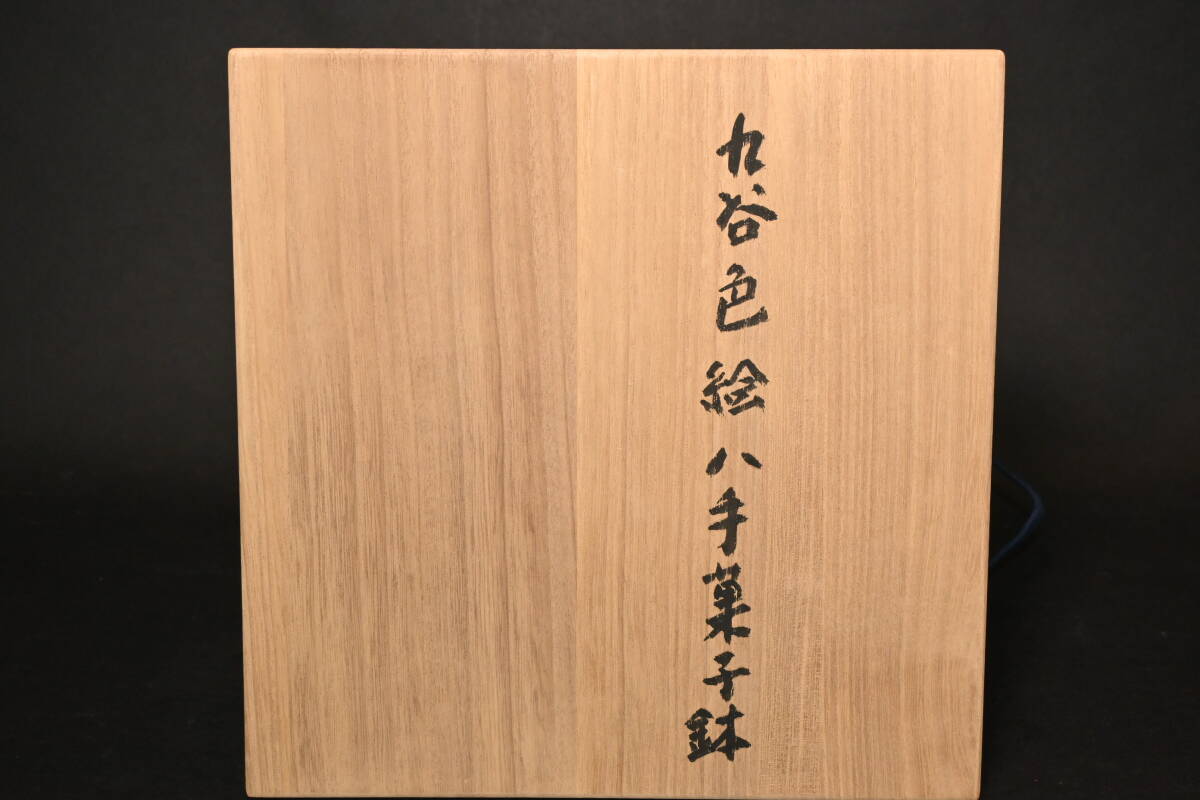 九谷色絵八手菓子鉢